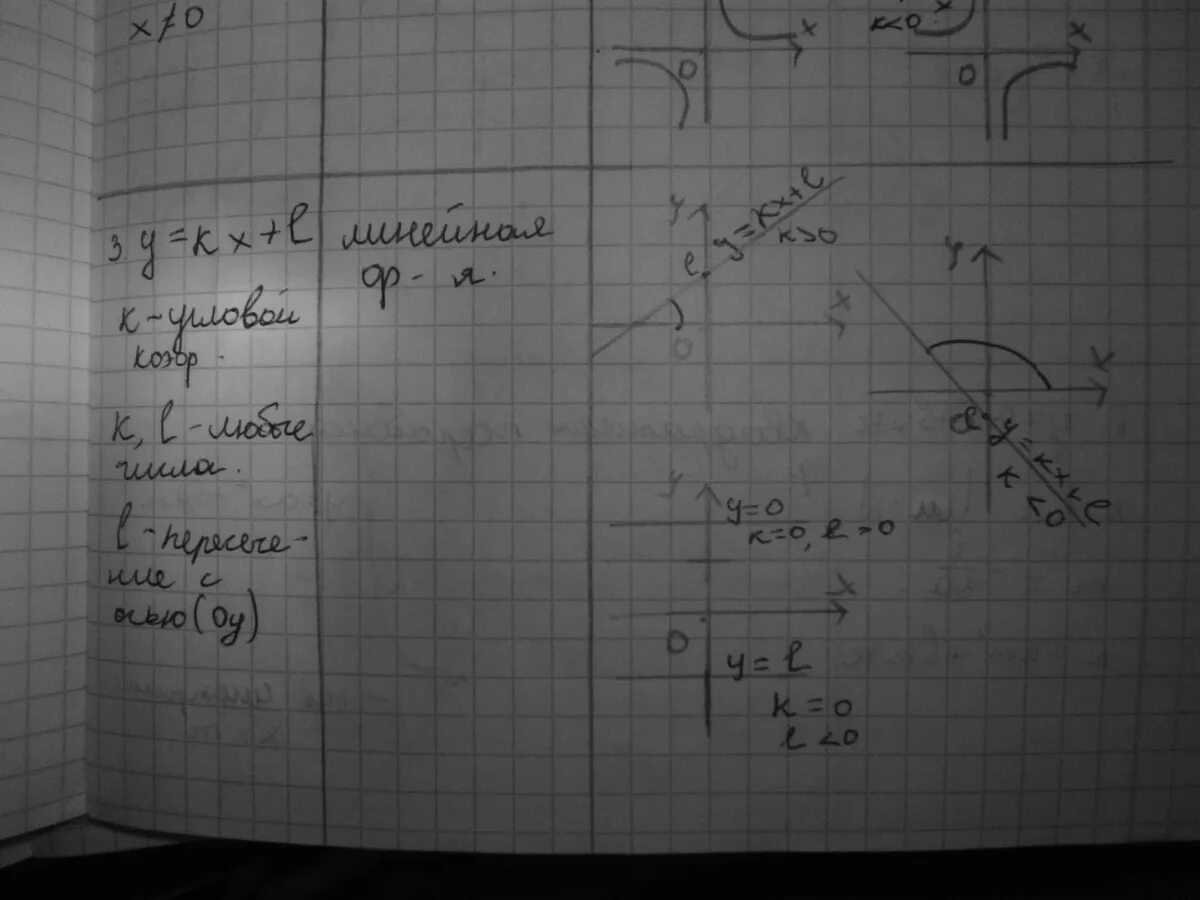 x≠0
x
0
k<0
x
x
0
3. y=kx+l
k - угловой
коэф.
k, l - любые
числа.
l - пересече-
ние с
осью (Оу)
линейная
ф-я.
y
y=kx+l
k>0
l
x
0
y
x
l
y=kx+l
k<0
y
y=0
k=0, l>0
x
0
y=l
k=0
l<0